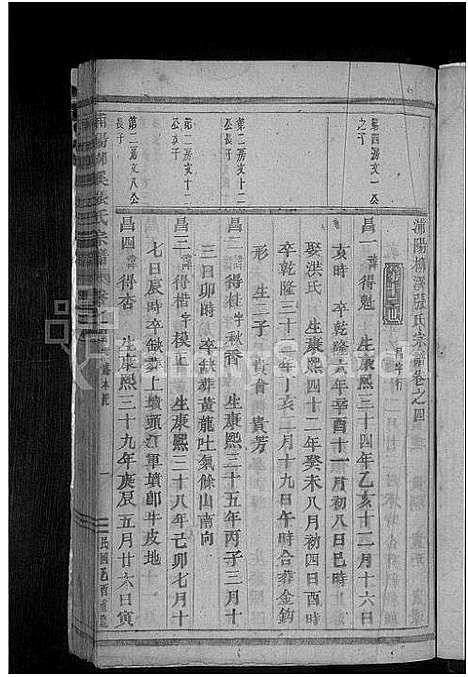 浦陽柳溪張氏宗譜卷之四
昌字行
第四房文一公之子
昌一 諱得魁 生康熙三十四年乙亥十二月十六日
亥時 卒乾隆六年辛酉十一月初八日巳時
娶洪氏 生康熙四十二年癸未八月初四日酉時
卒乾隆三十二年丁亥二月十九日午時合葬金鈎
形 生二子 貴會 貴芳
第二房文十二公長子
昌二 諱得桂 字秋香 生康熙三十五年丙子三月十
三日卯時 卒缺葬黃龍吐氣餘山南向
第二房文十二公次子
昌三 諱得楷 字模正 生康熙三十八年己卯七月十
七日辰時卒缺葬上墳頭江軍墳卽牛皮地
第二房文八公長子
昌四 諱得杏 生康熙三十九年庚辰五月廿六日寅
浦陽柳溪張氏宗譜
一
民國